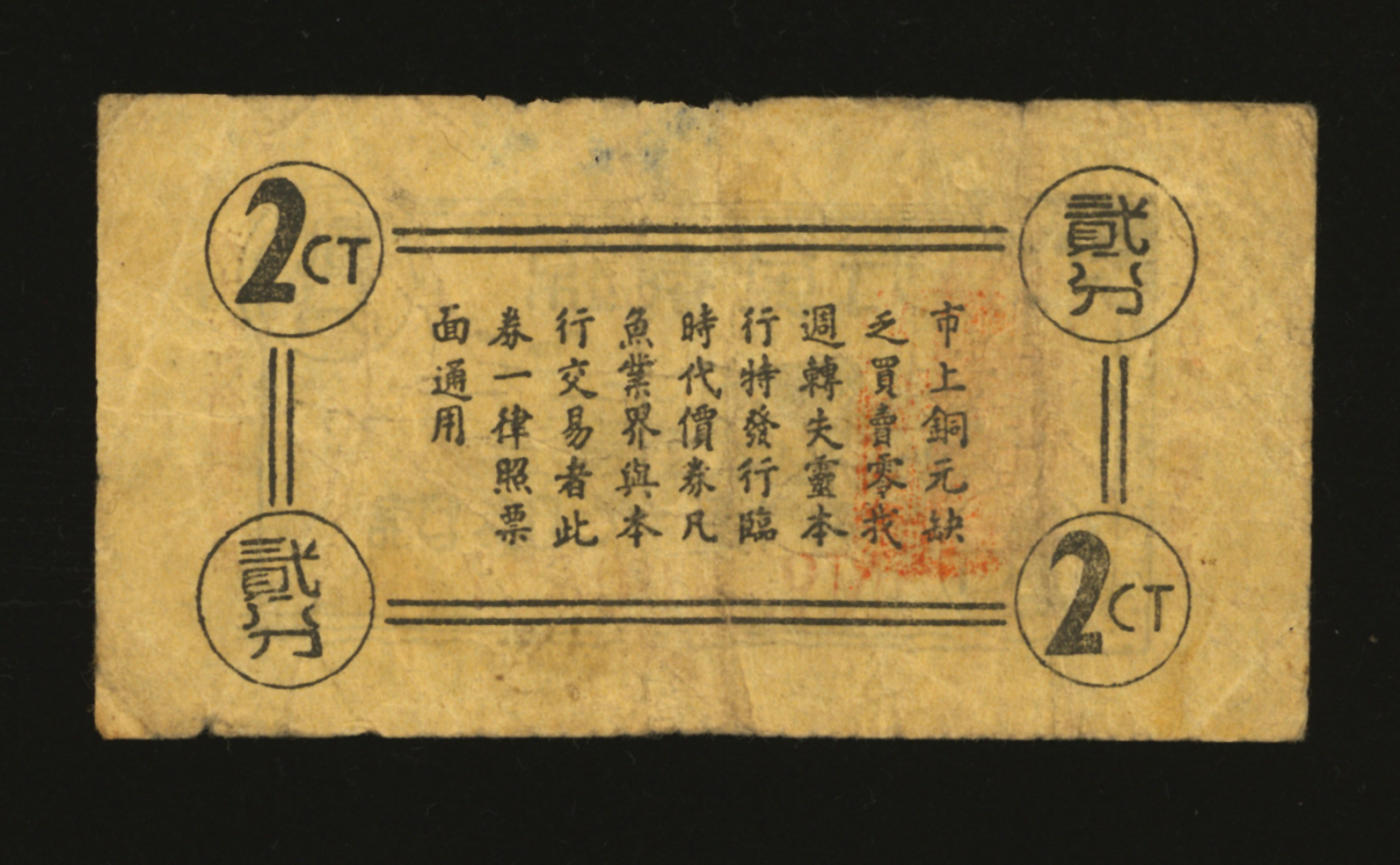 2CT
貳分
市上銅元缺
乏買賣零找
週轉失靈本
行特發行臨
時代價券凡
魚業界與本
行交易者此
券一律照票
面通用
貳分
2CT